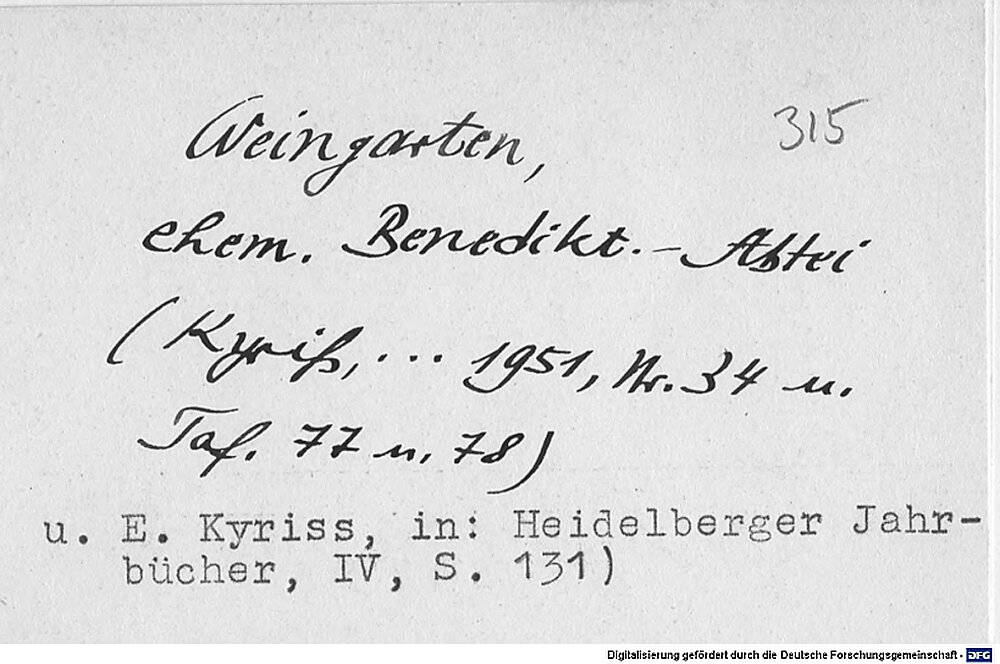 315
Weingarten,
ehem. Benedikt.-Abtei
(Kyriß, ... 1951, Nr. 34 u.
Taf. 77 u. 78)
u. E. Kyriss, in: Heidelberger Jahr-
bücher, IV, S. 131)
Digitalisierung gefördert durch die Deutsche Forschungsgemeinschaft - DFG